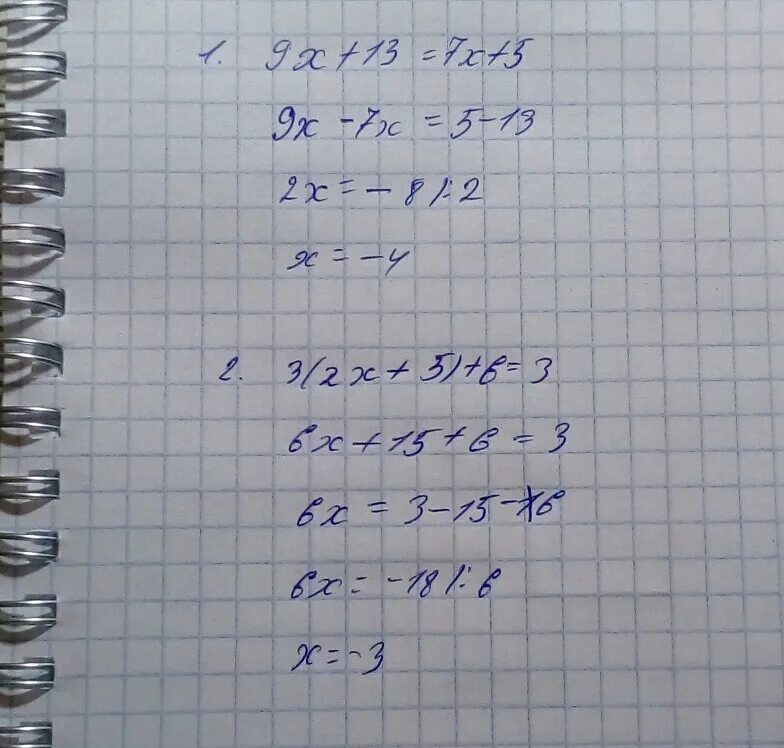 1. 9x + 13 = 7x + 5
9x - 7x = 5 - 13
2x = - 8 |: 2
x = - 4
2. 3(2x + 5) + 6 = 3
6x + 15 + 6 = 3
6x = 3 - 15 - 6
6x = - 18 |: 6
x = - 3